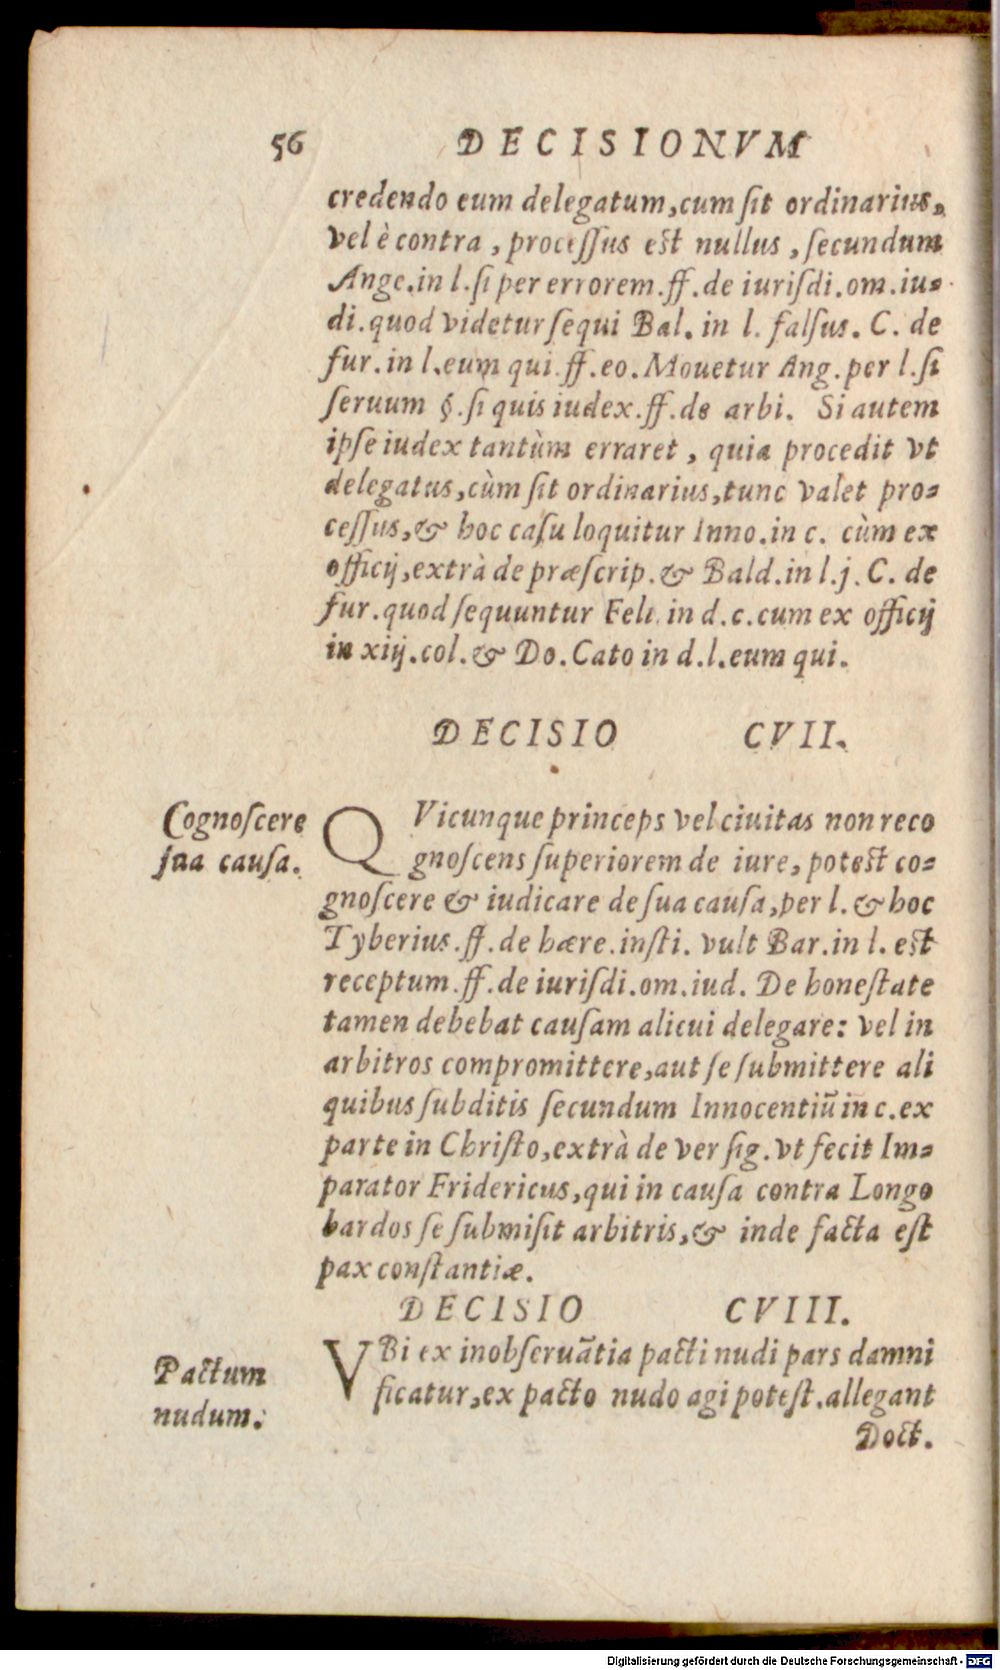 56 DECISIONVM
credendo eum delegatum, cum ſit ordinarius,
vel è contra, proceſſus est nullus, ſecundum
Ange. in l. ſi per errorem. ff. de iuriſdi. om. iu-
di. quod videtur ſequi Bal. in l. falſus. C. de
fur. in l. eum qui. ff. eo. Mouetur Ang. per l. ſi
ſeruum §. ſi quis iudex. ff. de arbi. Si autem
ipſe iudex tantùm erraret, quia procedit vt
delegatus, cùm ſit ordinarius, tunc valet pro-
ceſſus, & hoc caſu loquitur Inno. in c. cùm ex
officij, extrà de præſcrip. & Bald. in l. j. C. de
fur. quod ſequuntur Feli. in d. c. cum ex officij
in xiij. col. & Do. Cato in d. l. eum qui.
DECISIO CVII.
Cognoſcere
ſua cauſa.
QVicunque princeps vel ciuitas non reco
gnoſcens ſuperiorem de iure, potest co-
gnoſcere & iudicare de ſua cauſa, per l. & hoc
Tyberius. ff. de hære. inſti. vult Bar. in l. est
receptum. ff. de iuriſdi. om. iud. De honeſtate
tamen debebat cauſam alicui delegare: vel in
arbitros compromittere, aut ſe ſubmittere ali
quibus ſubditis ſecundum Innocentiū in c. ex
parte in Chriſto, extrà de ver ſig. vt fecit Im-
parator Fridericus, qui in cauſa contra Longo
bardos ſe ſubmiſit arbitris, & inde facta eſt
pax conſtantiæ.
DECISIO CVIII.
Pactum
nudum.
VBi ex inobſeruãtia pacti nudi pars damni
ficatur, ex pacto nudo agi poteſt. allegant
Doct.
Digitalisierung gefördert durch die Deutsche Forschungsgemeinschaft - DFG